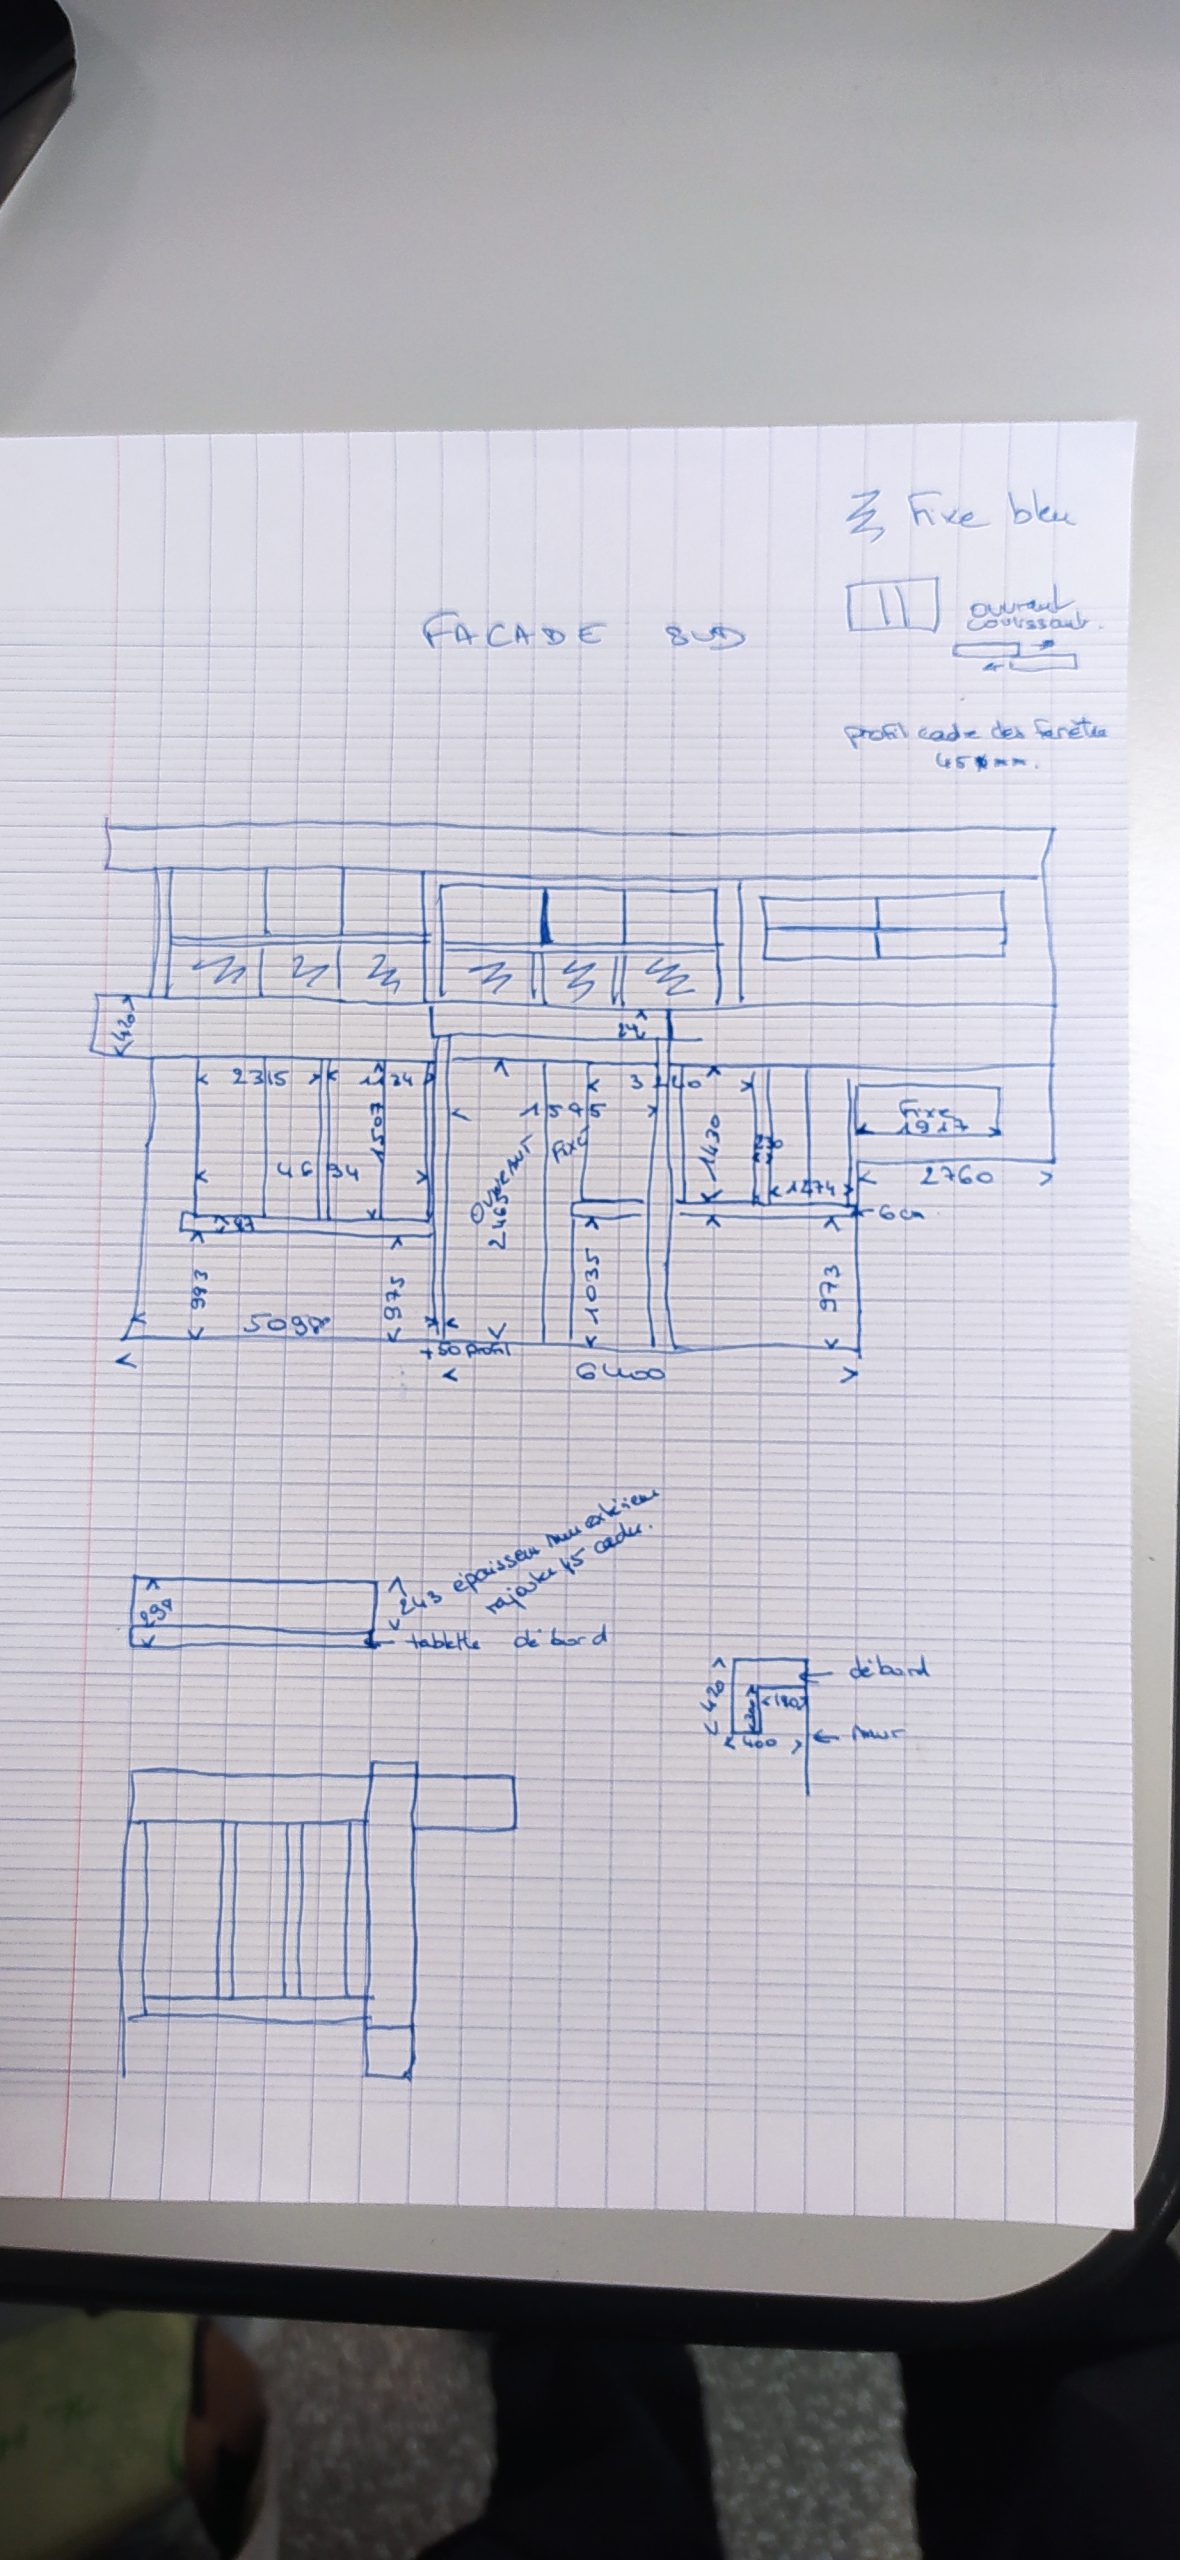 Fixe bleu
ouvrant
coulissant.
FACADE SUD
profil cadre des fenêtre
45 mm.
420
24
2315
1124
1507
4634
87
993
975
5098
+50 profil
1545
Fixe
Ouvrant
2465
3140
1035
1430
1274
973
6400
Fixe
1917
2760
6cm
298
243 épaisseur mur extérieur
rajouter 45 cadre.
tablette débord
débord
420
180
400
mur